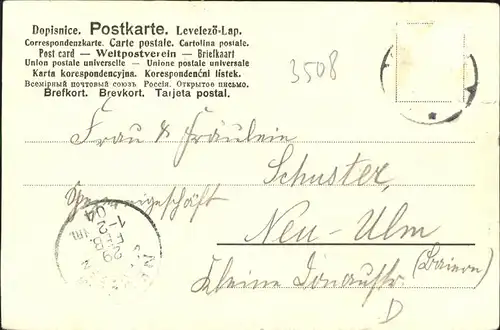 Dopisnice. Postkarte. Levelező-Lap.
Correspondenzkarte. Carte postale. Cartolina postale.
Post card — Weltpostverein — Briefkaart
Union postale universelle — Unione postale universale
Karta korespondencyjna. Korespondenční lístek.
Всемірный почтовый союзъ Россія. Открытое письмо.
Brefkort. Brevkort. Tarjeta postal.
3508
Frau & Fräulein
Schuster,
Spezereigeschäft
Neu-Ulm
(Baiern)
Kleine Donaustr.
D
29
FEB.
1-2
04